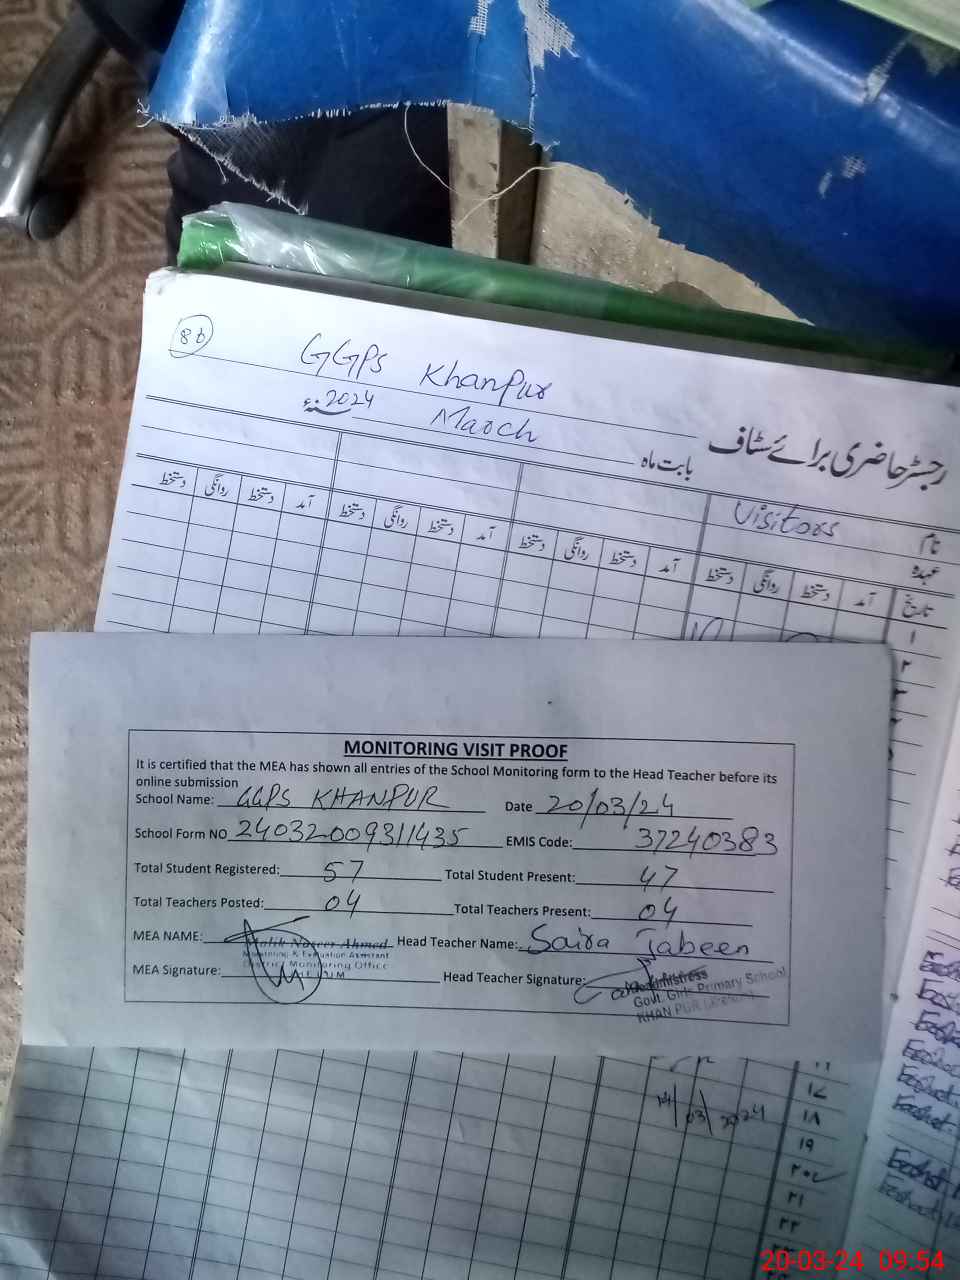 80
GGPS Khanpur
2024 سنہء March بابت ماہ رجسٹر حاضری برائے سٹاف
نام Visitors
عہدہ
تاریخ آمد دستخط روانگی دستخط آمد دستخط روانگی دستخط آمد دستخط روانگی دستخط آمد دستخط روانگی دستخط
۱
۲
۳
MONITORING VISIT PROOF
It is certified that the MEA has shown all entries of the School Monitoring form to the Head Teacher before its
online submission
School Name: GGPS KHANPUR Date 20/03/24
School Form NO 24032009311435 EMIS Code: 37240383
Total Student Registered: 57 Total Student Present: 47
Total Teachers Posted: 04 Total Teachers Present: 04
MEA NAME: Malik Naseer Ahmed Head Teacher Name: Saira Jabeen
Monitoring & Evaluation Assistant
District Monitoring Office
MEA Signature: JHELUM Head Teacher Signature:
Headmistress
Govt. Girls Primary School
KHAN PUR
۱۷
14/03/2024 ۱۸
۱۹
۲۰
۲۱
۲۲
20-03-24 09:54